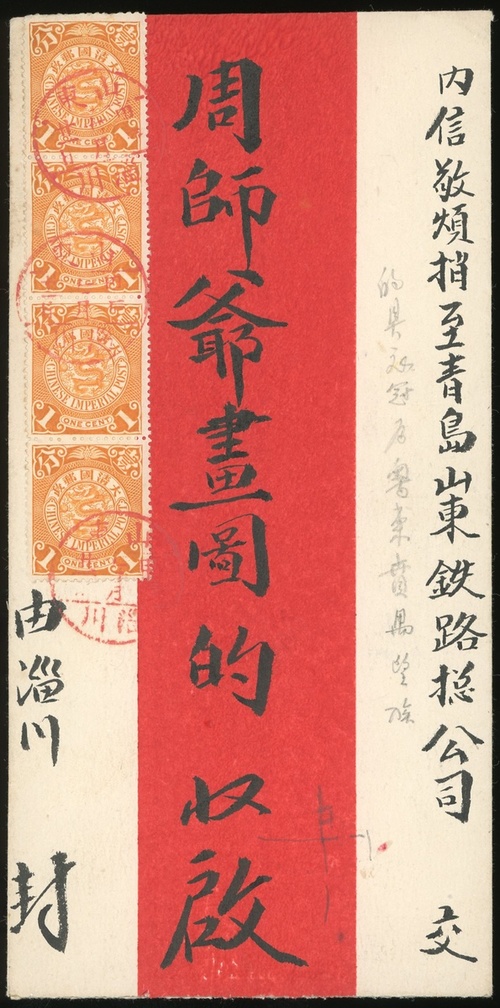 内信敬煩捎至青島山東鉄路捴公司 交
周師爺畫圖的 収啟
由淄川 封
壹分
大清國郵政
CHINESE IMPERIAL POST
1 ONE CENT 1
壹分
大清國郵政
CHINESE IMPERIAL POST
1 ONE CENT 1
壹分
大清國郵政
CHINESE IMPERIAL POST
1 ONE CENT 1
壹分
大清國郵政
CHINESE IMPERIAL POST
1 ONE CENT 1
山東
淄川